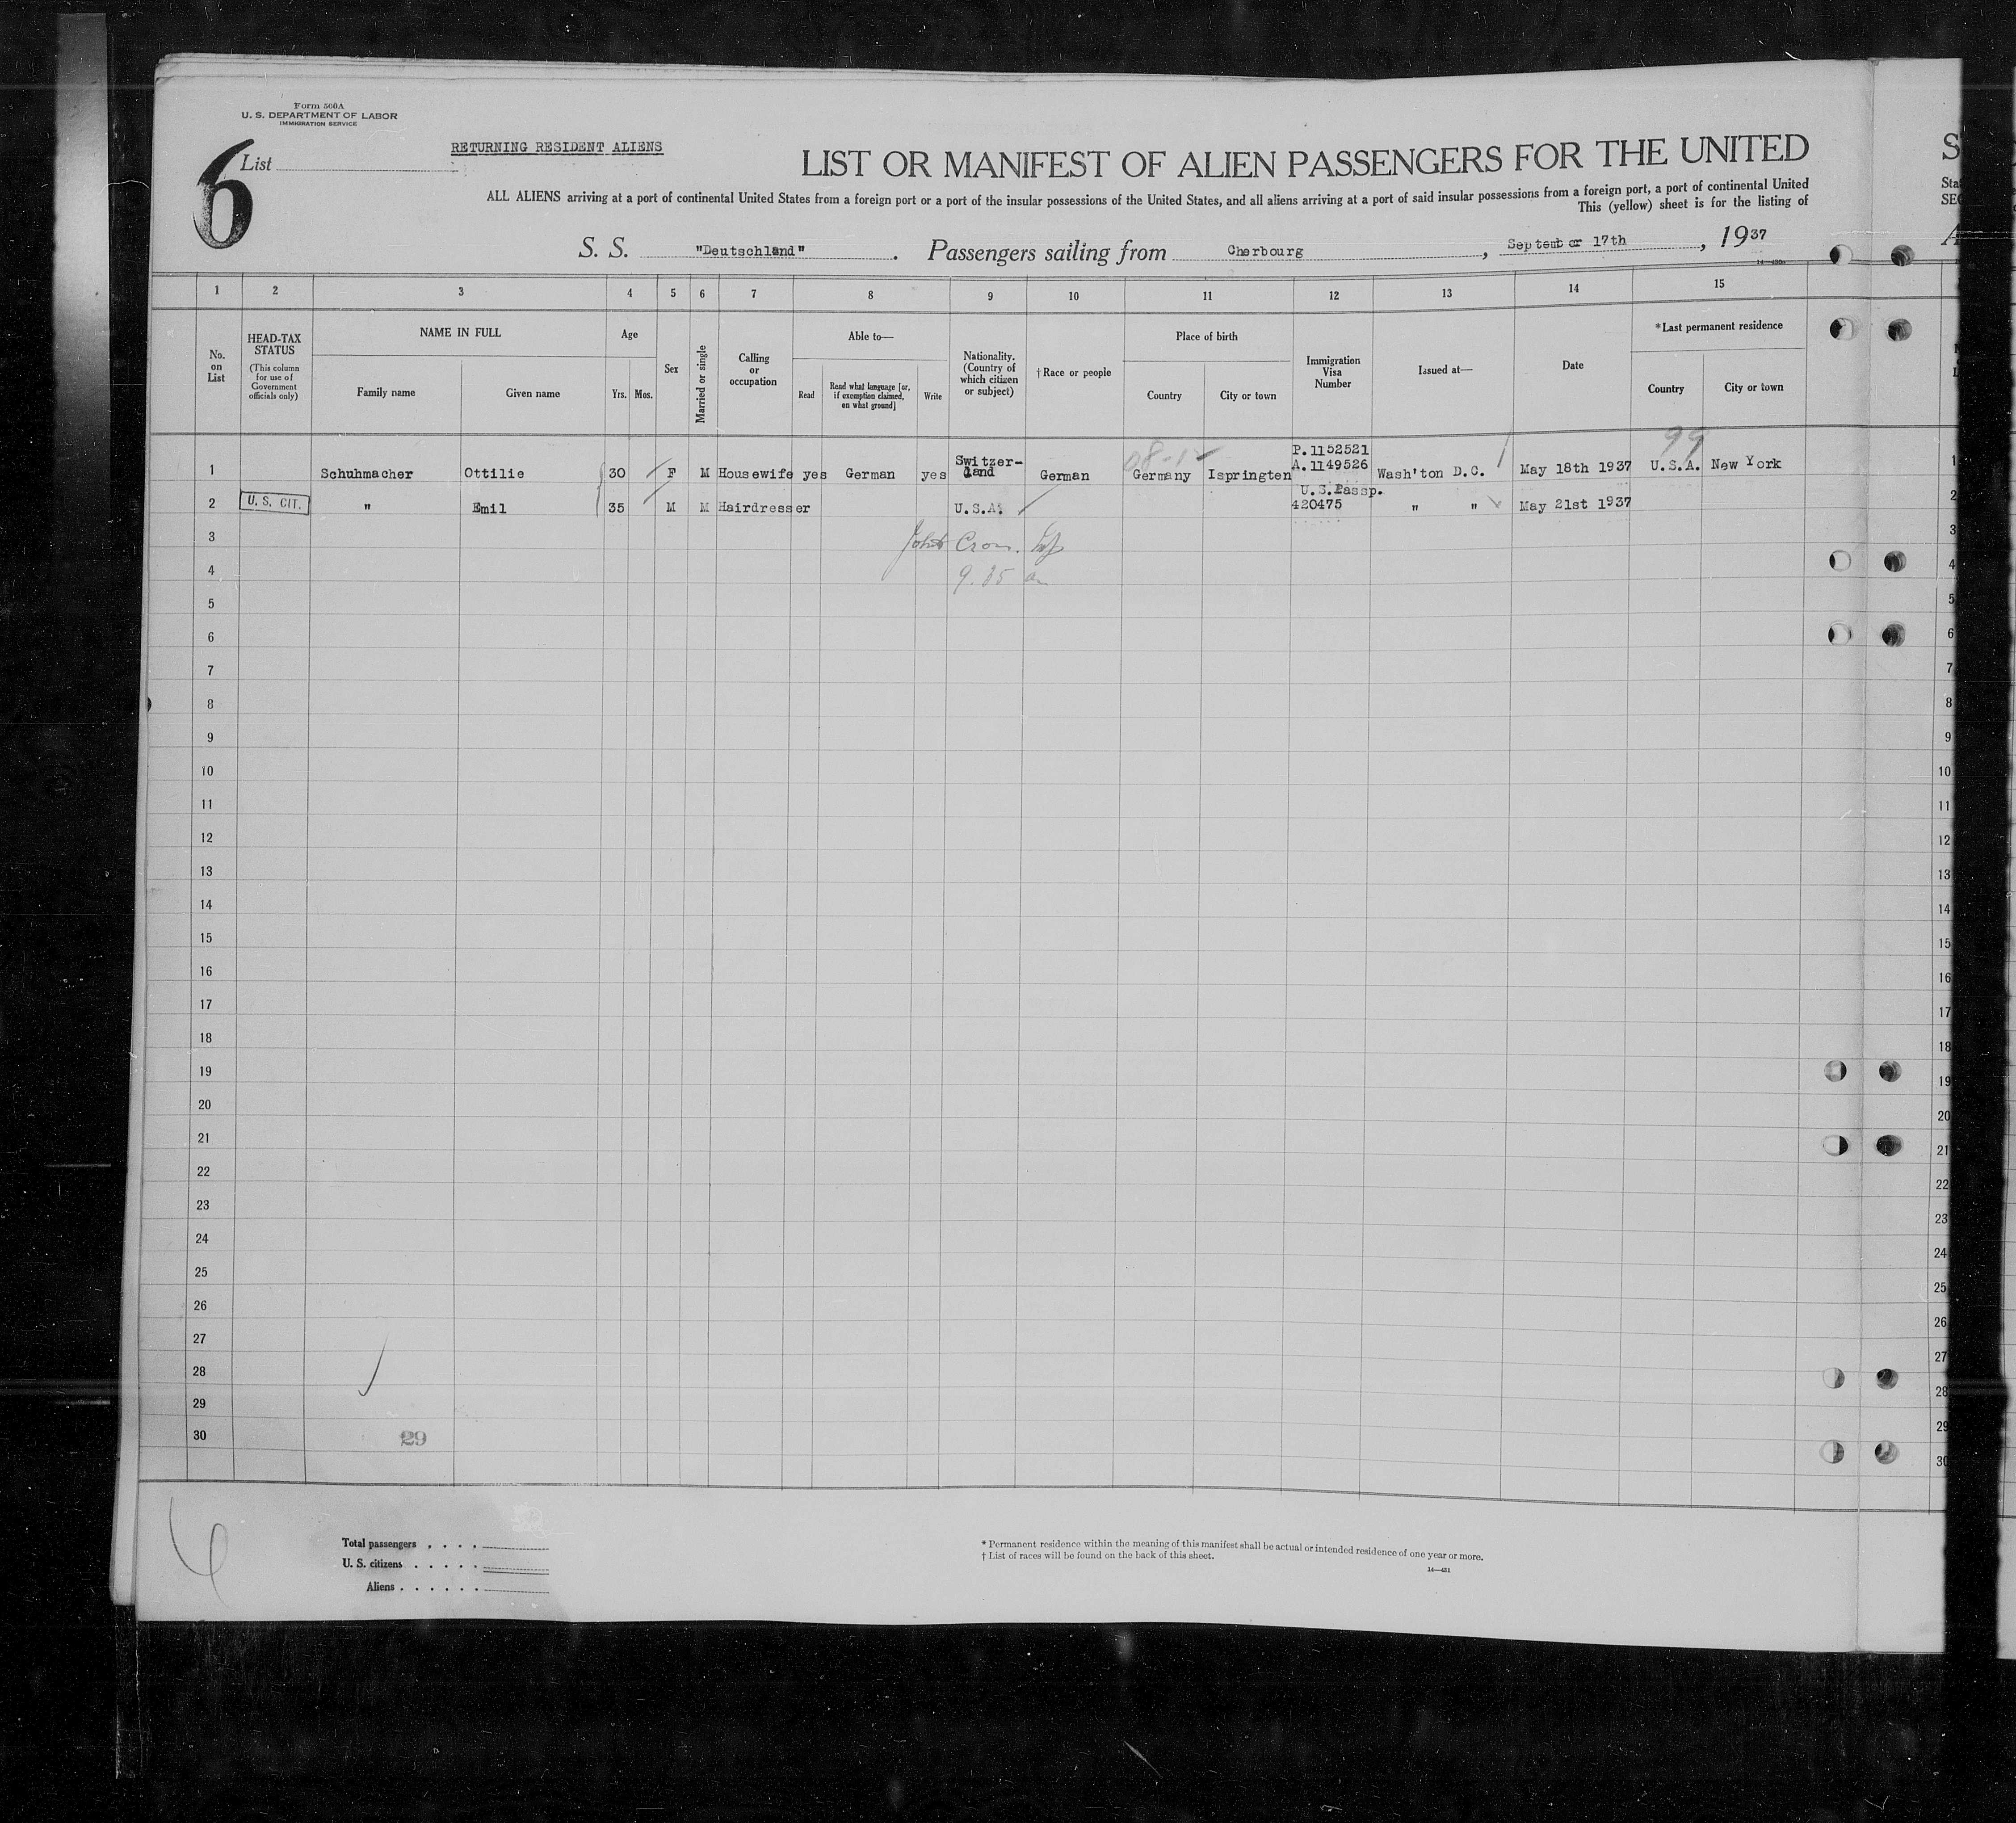 Form 500A
U. S. DEPARTMENT OF LABOR
IMMIGRATION SERVICE
6
List
RETURNING RESIDENT ALIENS
LIST OR MANIFEST OF ALIEN PASSENGERS FOR THE UNITED
ALL ALIENS arriving at a port of continental United States from a foreign port or a port of the insular possessions of the United States, and all aliens arriving at a port of said insular possessions from a foreign port, a port of continental United
This (yellow) sheet is for the listing of
S. S. "Deutschland". Passengers sailing from Cherbourg, September 17th, 1937
1 2 3 4 5 6 7 8 9 10 11 12 13 14 15
No. on List
HEAD-TAX STATUS
(This column for use of Government officials only)
NAME IN FULL
Family name Given name
Age
Yrs. Mos.
Sex
Married or single
Calling or occupation
Able to—
Read
Read what language [or, if exemption claimed, on what ground]
Write
Nationality. (Country of which citizen or subject)
†Race or people
Place of birth
Country City or town
Immigration Visa Number
Issued at—
Date
*Last permanent residence
Country City or town
99
1 Schuhmacher Ottilie 30 F M Housewife yes German yes Switzer-land German Germany Ispringten P.1152521 A.1149526 Wash'ton D.C. May 18th 1937 U.S.A. New York
2 U. S. CIT. " Emil 35 M M Hairdresser U.S.A. U.S.Passp. 420475 " " May 21st 1937
3
4
5
6
7
8
9
10
11
12
13
14
15
16
17
18
19
20
21
22
23
24
25
26
27
28
29
30
29
6
Total passengers
U. S. citizens
Aliens
* Permanent residence within the meaning of this manifest shall be actual or intended residence of one year or more.
† List of races will be found on the back of this sheet.
14—431